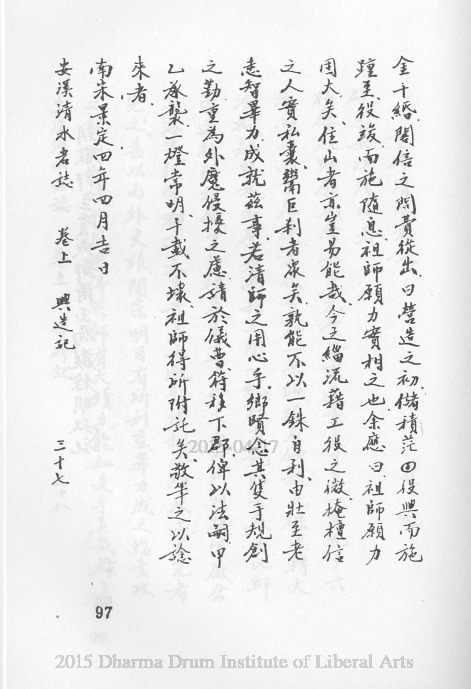 金千緡閣僖之閣費從出曰營造之初儲積茫由役興而施
踵至役竣而施隨息祖師願力實相之也余應曰祖師願力
固大矣住山者亦豈易能哉今之緇流藉工役之微掩檀信
之人實私囊鬻巨刹者眾矣孰能不以一銖自利由壯至老
志智畢力成就茲事若清師之用心乎鄉賢念其隻手規創
之勤重為外魔侵擾之慮請於儀曹符移下郡俾以法嗣甲
乙承襲一燈常明千載不壞祖師得所附託矣敬筆之以諗
來者
南宋景定四年四月吉日
安溪清水岩誌 卷上 興造記 三十七
97
2015 Dharma Drum Institute of Liberal Arts